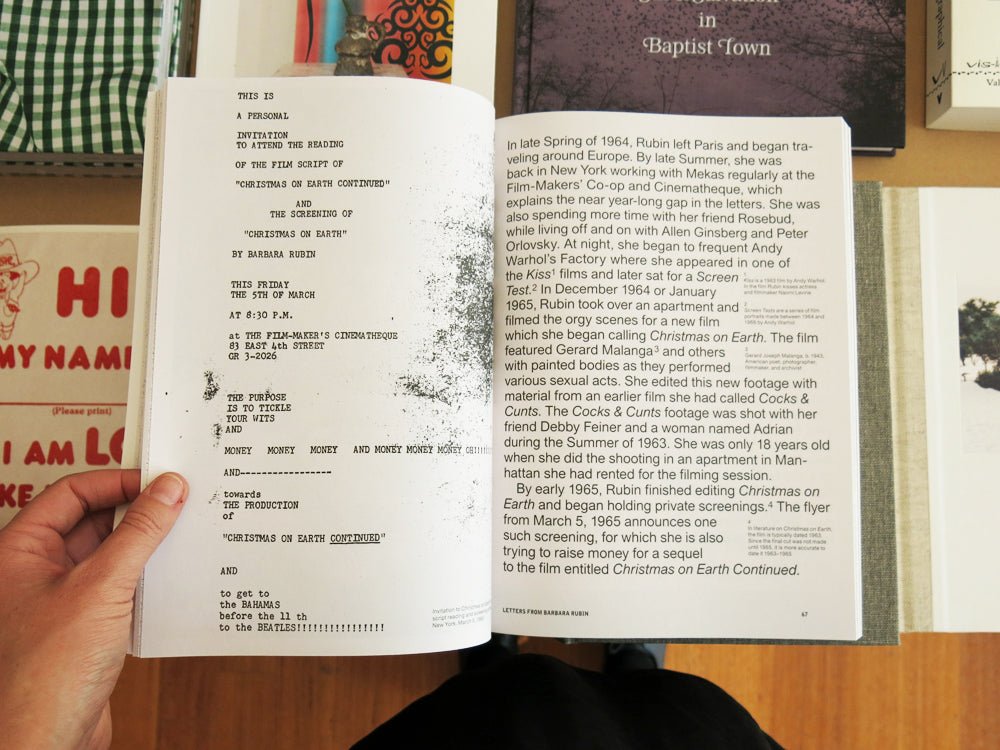 in
Baptist Town
THIS IS
A PERSONAL
INVITATION
TO ATTEND THE READING
OF THE FILM SCRIPT OF
"CHRISTMAS ON EARTH CONTINUED"
AND
THE SCREENING OF
"CHRISTMAS ON EARTH"
BY BARBARA RUBIN
THIS FRIDAY
THE 5TH OF MARCH
AT 8:30 P.M.
at THE FILM-MAKER'S CINEMATHEQUE
83 EAST 4th STREET
GR 3-2026
THE PURPOSE
IS TO TICKLE
YOUR WITS
AND
MONEY MONEY MONEY AND MONEY MONEY MONEY OH!!!!
AND-----------------
towards
THE PRODUCTION
of
"CHRISTMAS ON EARTH CONTINUED"
AND
to get to
the BAHAMAS
before the 11 th
to the BEATLES!!!!!!!!!!!!!!!!
Invitation to Christmas on
script reading and
New York, March 5,
In late Spring of 1964, Rubin left Paris and began tra-
veling around Europe. By late Summer, she was
back in New York working with Mekas regularly at the
Film-Makers' Co-op and Cinematheque, which
explains the near year-long gap in the letters. She was
also spending more time with her friend Rosebud,
while living off and on with Allen Ginsberg and Peter
Orlovsky. At night, she began to frequent Andy
Warhol's Factory where she appeared in one of
the Kiss¹ films and later sat for a Screen
Test.² In December 1964 or January
1965, Rubin took over an apartment and
filmed the orgy scenes for a new film
which she began calling Christmas on Earth. The film
featured Gerard Malanga³ and others
with painted bodies as they performed
various sexual acts. She edited this new footage with
material from an earlier film she had called Cocks &
Cunts. The Cocks & Cunts footage was shot with her
friend Debby Feiner and a woman named Adrian
during the Summer of 1963. She was only 18 years old
when she did the shooting in an apartment in Man-
hattan she had rented for the filming session.
By early 1965, Rubin finished editing Christmas on
Earth and began holding private screenings.⁴ The flyer
from March 5, 1965 announces one
such screening, for which she is also
trying to raise money for a sequel
to the film entitled Christmas on Earth Continued.
1
Kiss is a 1963 film by Andy Warhol.
In the film Rubin kisses actress
and filmmaker Naomi Levine
2
Screen Tests are a series of film
portraits made between 1964 and
1966 by Andy Warhol
3
Gerard Joseph Malanga, b. 1943,
American poet, photographer,
filmmaker, and archivist
4
In literature on Christmas on Earth,
the film is typically dated 1963.
Since the final cut was not made
until 1965, it is more accurate to
date it 1963–1965.
LETTERS FROM BARBARA RUBIN
67
HI
MY NAM
(Please print)
I AM LO
KE